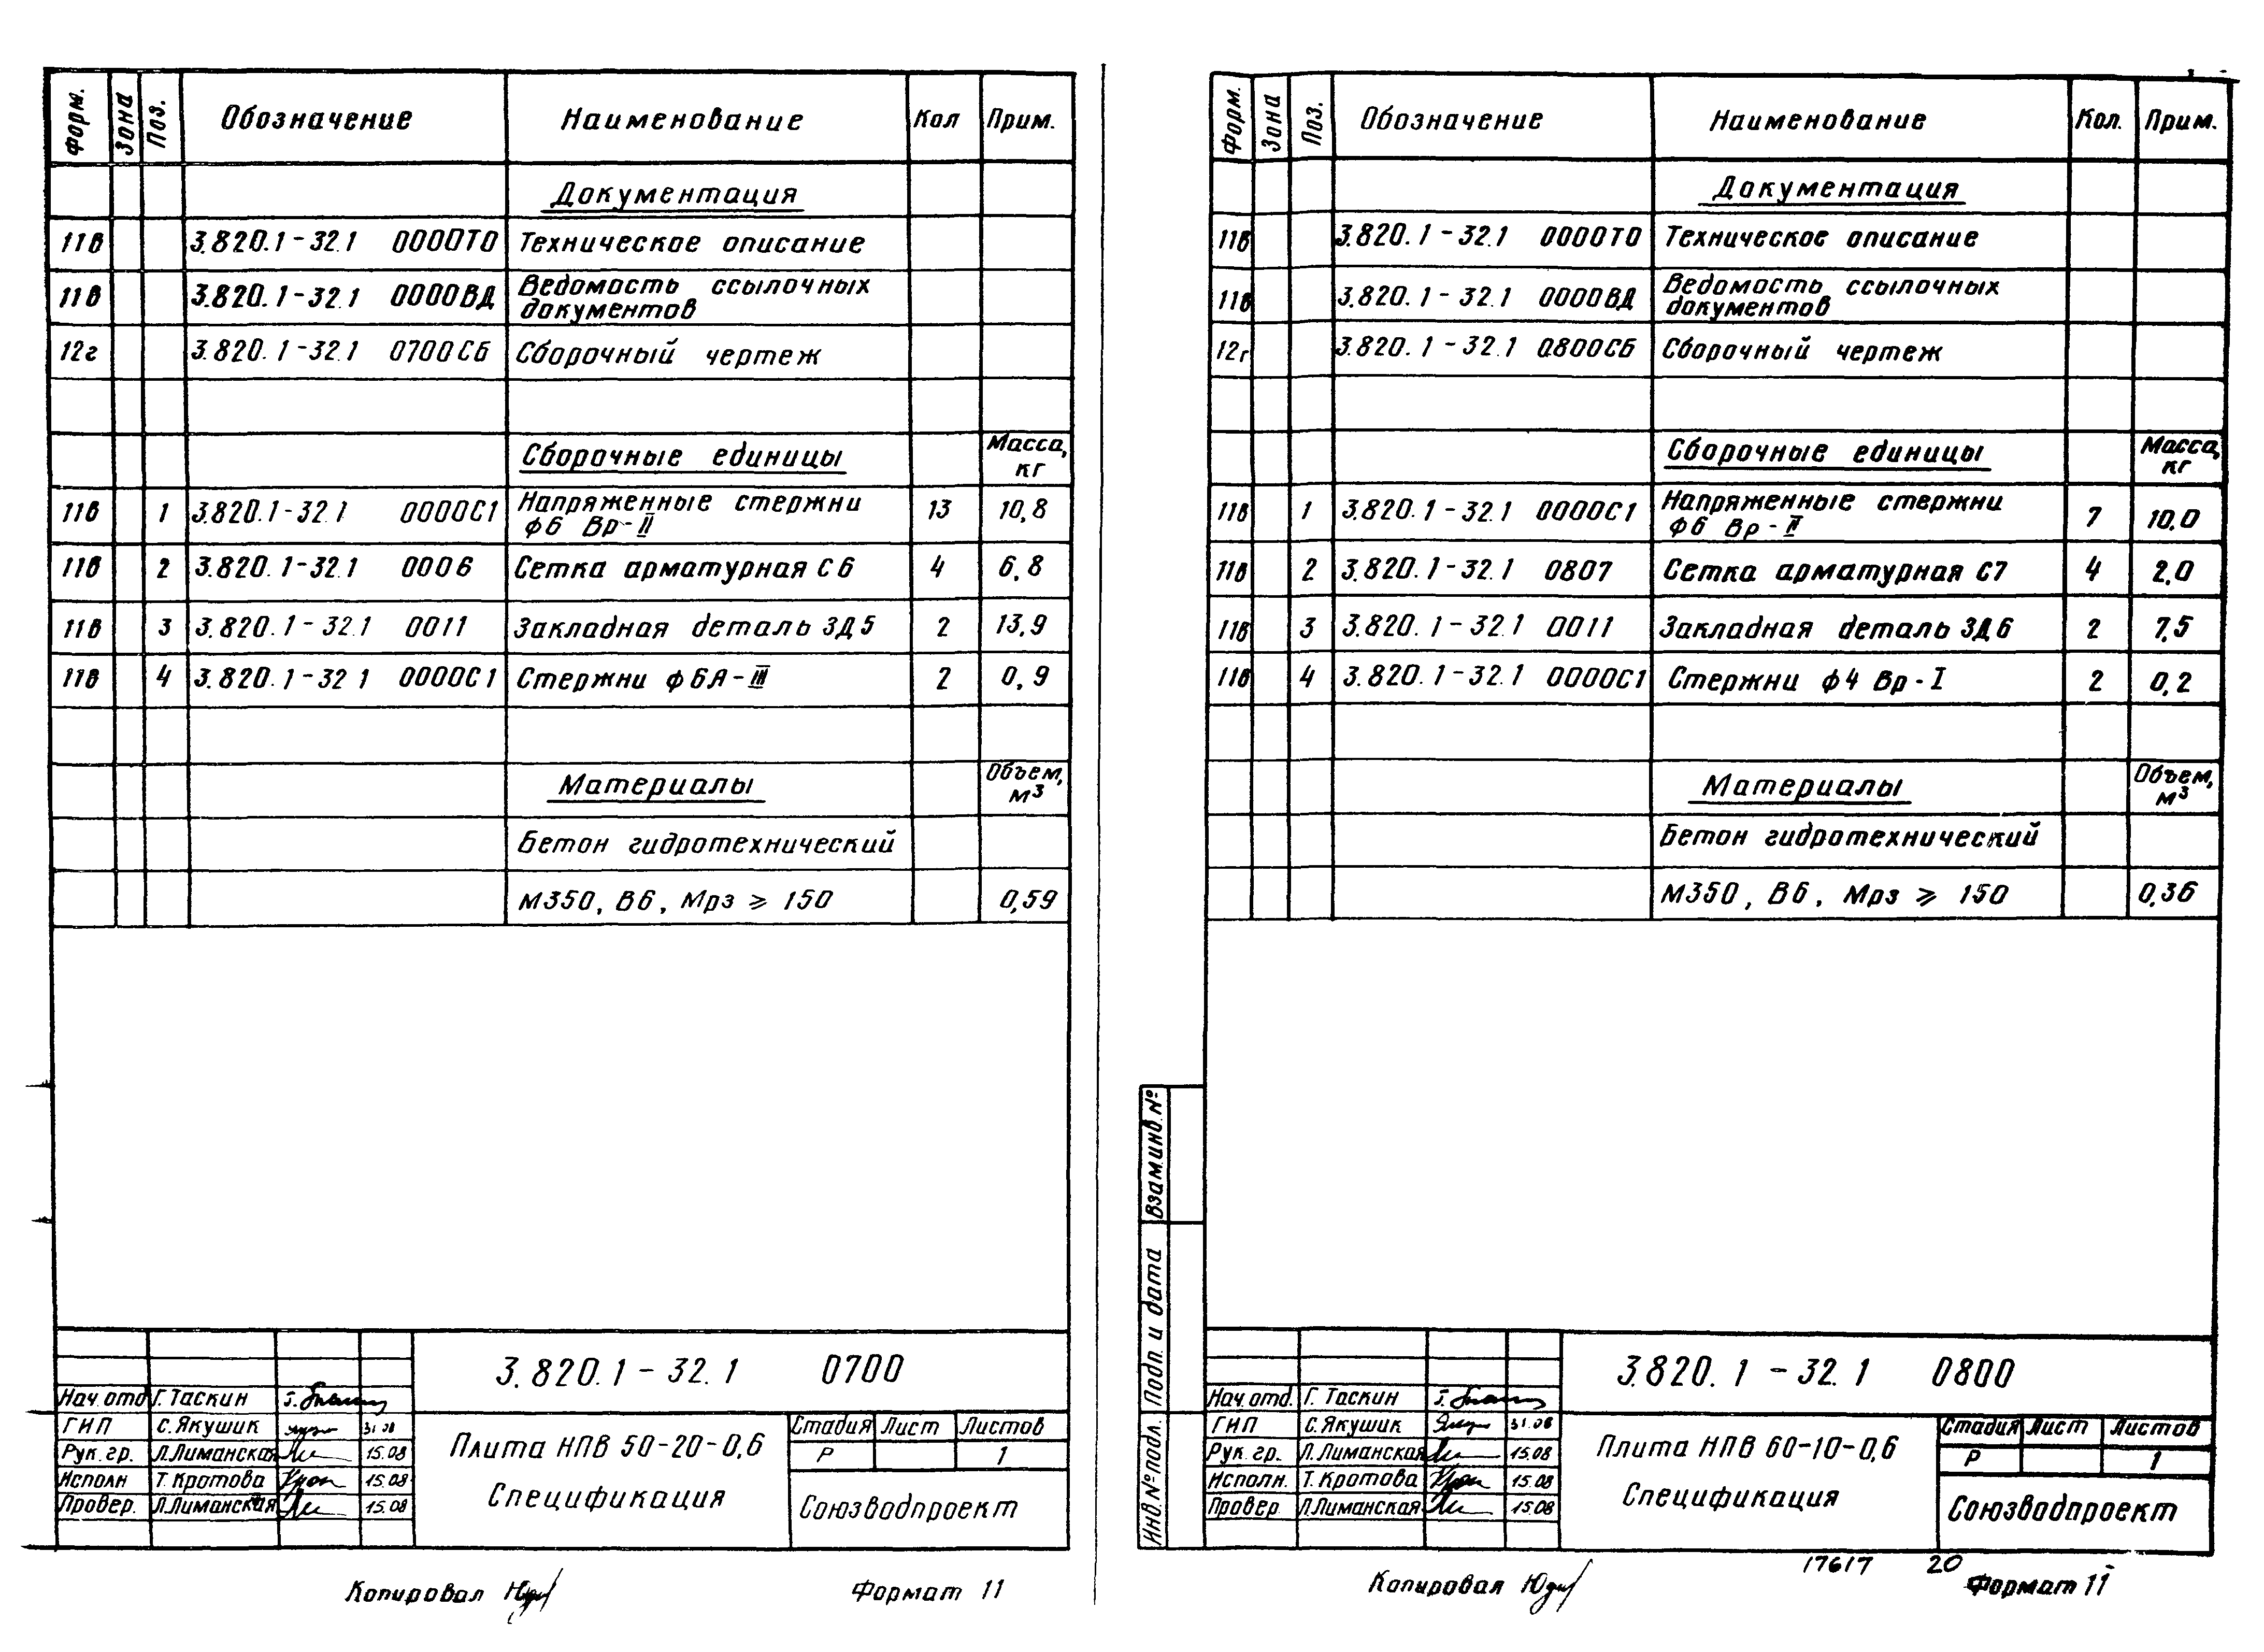 Форм. Зона Поз. Обозначение Наименование Кол Прим.
Документация
11в 3.820.1-32.1 0000ТО Техническое описание
11в 3.820.1-32.1 0000ВД Ведомость ссылочных
документов
12г 3.820.1-32.1 0700СБ Сборочный чертеж
Сборочные единицы Масса, кг
11в 1 3.820.1-32.1 0000С1 Напряженные стержни 13 10,8
ф6 Вр-II
11в 2 3.820.1-32.1 0006 Сетка арматурная С6 4 6,8
11в 3 3.820.1-32.1 0011 Закладная деталь ЗД5 2 13,9
11в 4 3.820.1-32 1 0000С1 Стержни ф6А-III 2 0,9
Материалы Объем, м³
Бетон гидротехнический
М350, В6, Мрз ⩾ 150 0,59
3.820.1-32.1 0700
Нач.отд Г.Таскин
ГИП С.Якушик 31.08
Рук.гр. Л.Лиманская 15.08
Исполн Т.Кротова 15.08
Провер. Л.Лиманская 15.08
Плита НПВ 50-20-0,6
Спецификация
Стадия Лист Листов
Р 1
Союзводпроект
Копировал
Формат 11
Форм. Зона Поз. Обозначение Наименование Кол. Прим.
Документация
11в 3.820.1-32.1 0000ТО Техническое описание
11в 3.820.1-32.1 0000ВД Ведомость ссылочных
документов
12г 3.820.1-32.1 0800СБ Сборочный чертеж
Сборочные единицы Масса, кг
11в 1 3.820.1-32.1 0000С1 Напряженные стержни 7 10,0
ф6 Вр-II
11в 2 3.820.1-32.1 0807 Сетка арматурная С7 4 2,0
11в 3 3.820.1-32.1 0011 Закладная деталь ЗД6 2 7,5
11в 4 3.820.1-32.1 0000С1 Стержни ф4 Вр-I 2 0,2
Материалы Объем, м³
Бетон гидротехнический
М350, В6, Мрз ⩾ 150 0,36
Взам.инв.№
Подп. и дата
Инв.№подл.
3.820.1-32.1 0800
Нач.отд. Г.Таскин
ГИП С.Якушик 31.08
Рук.гр. Л.Лиманская 15.08
Исполн. Т.Кротова 15.08
Провер Л.Лиманская 15.08
Плита НПВ 60-10-0,6
Спецификация
Стадия Лист Листов
Р 1
Союзводпроект
17617 20
Копировал
Формат 11